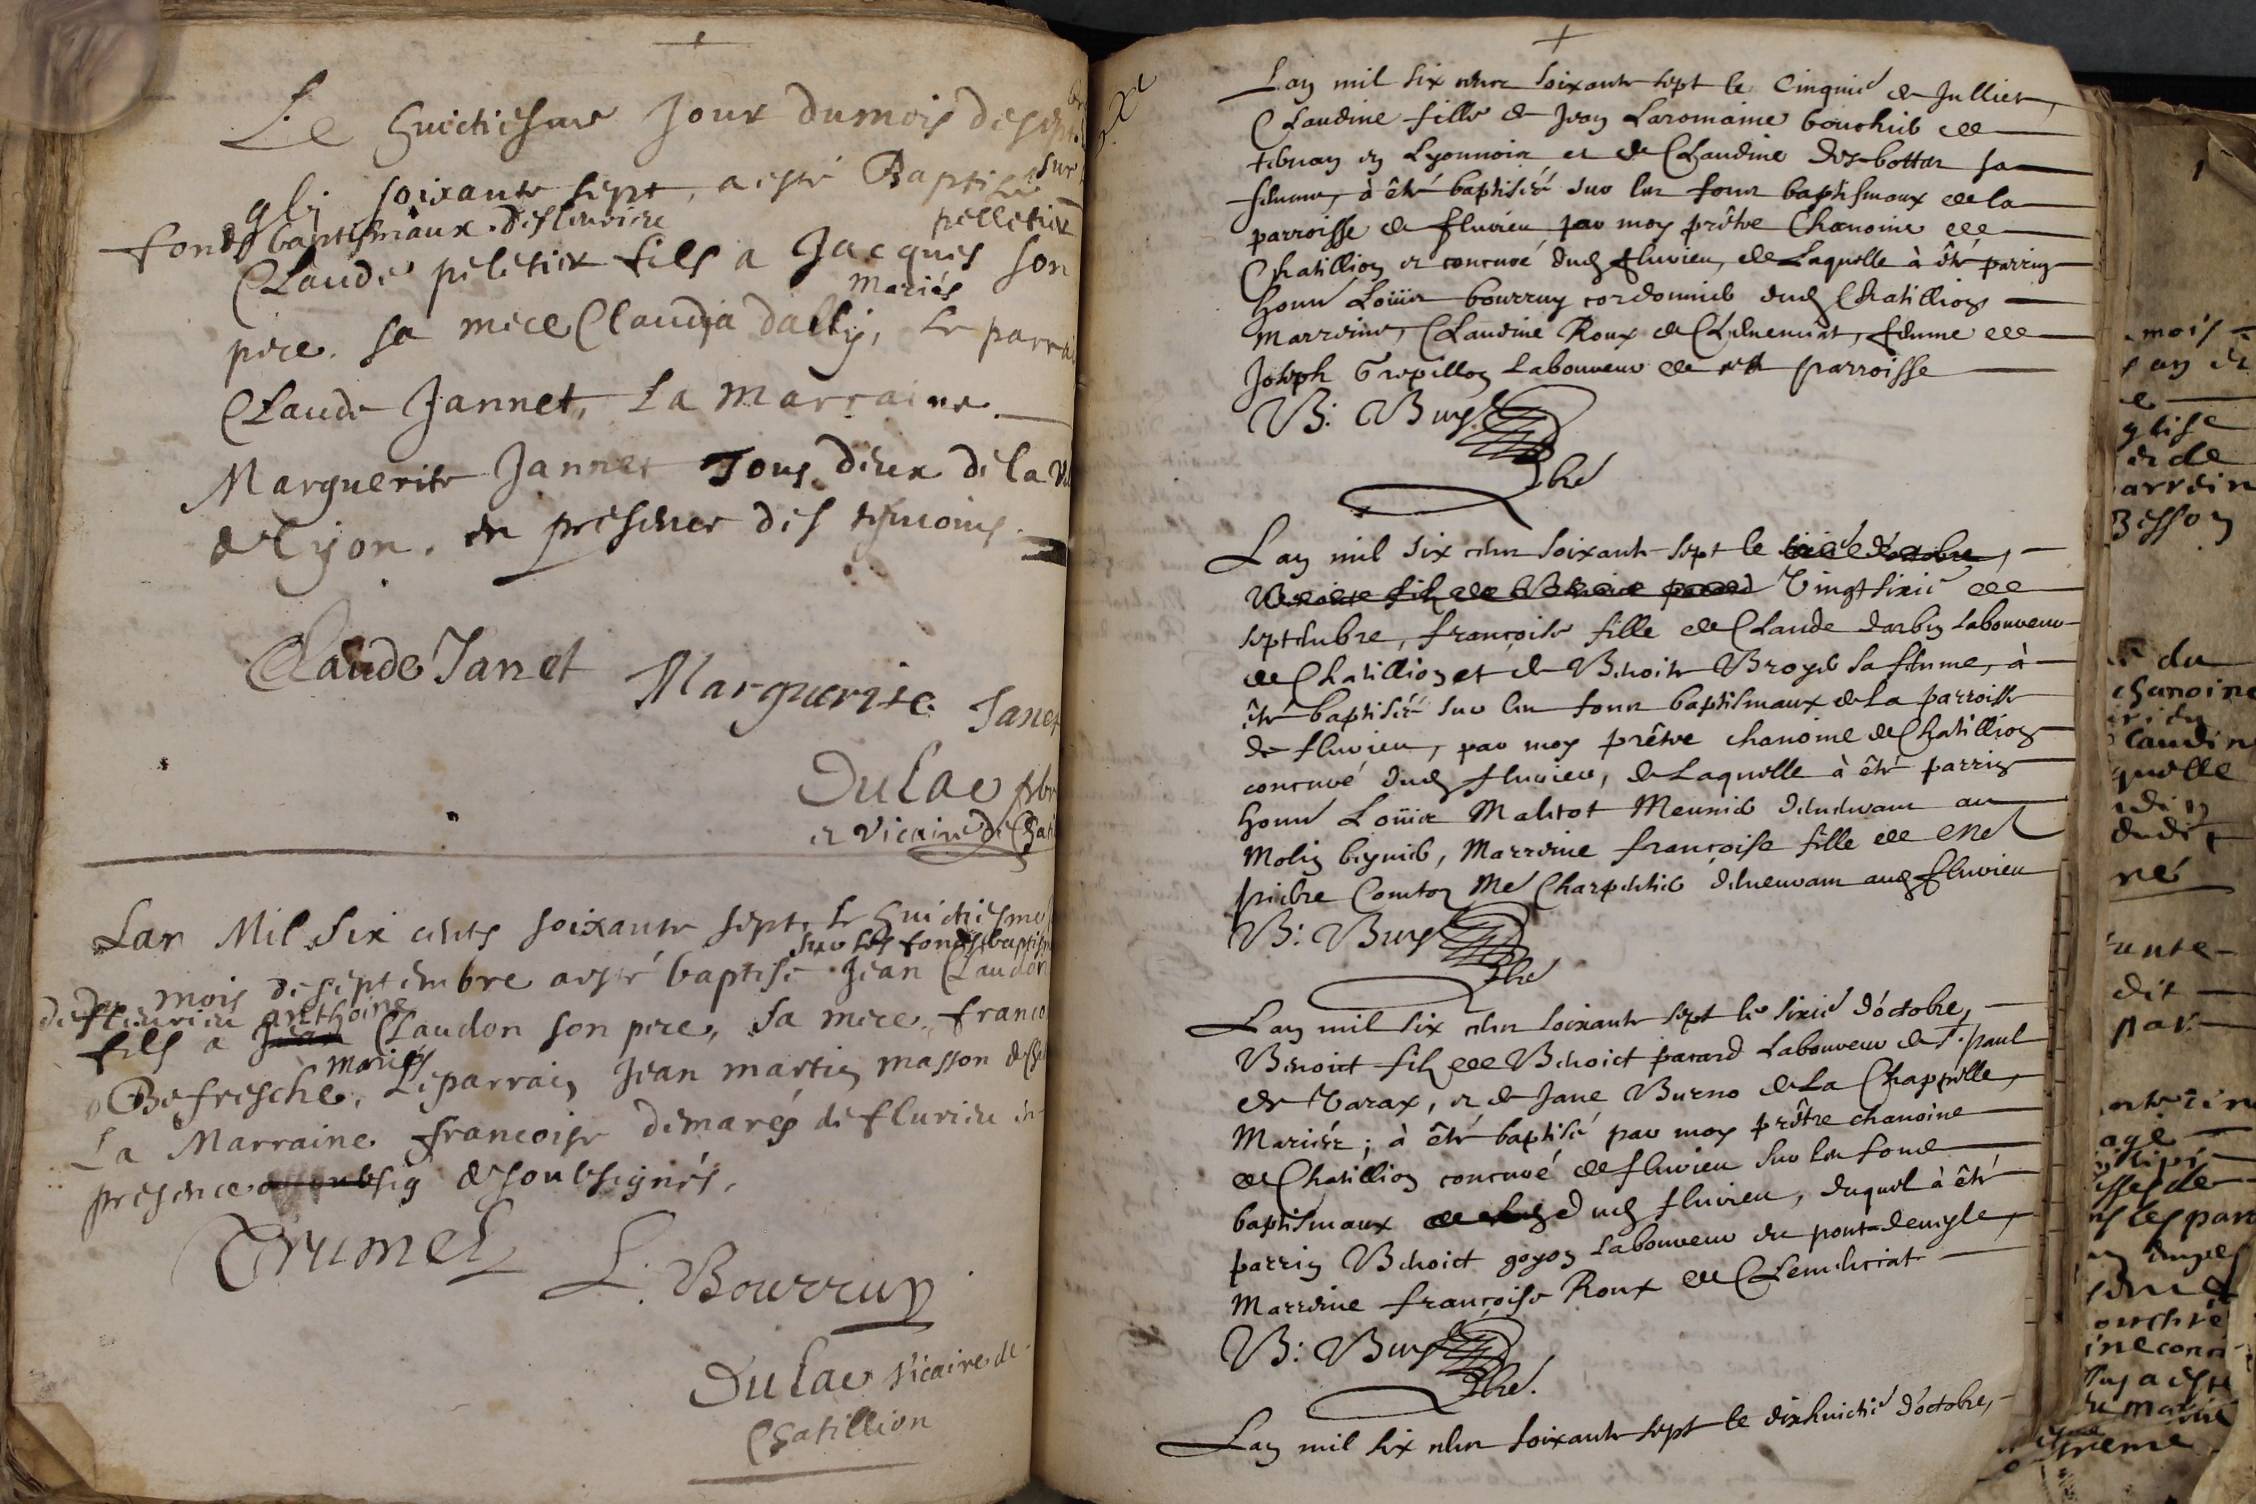 Le huictiesme Jour du mois de sept
soixante sept, a esté Baptisé sur
fonds baptismaux de fleurieu
pelletier
Claude peletier fils a Jacques son
mariés
pere. sa mere Claudja dally, Le parra
Claude Jannet, La Marraine
Marguerite Jannet Tous deux de la vi
de Lyon. en presence des tesmoins.
Claude Janet Marguerite Janet
Du Lac pbr
et Vicaire de Chati
Lan Mil Six cents soixante sept, Le huictiesme
sur les fonds baptism
du mois de septembre a esté baptisé Jean Claudon
de fleurieu anthoine
fils a Claudon son pere, sa mere, franco
mariés
Befresche, Le parrain Jean martin masson de
La Marraine francoise demarés de flurieu en
presence desoubsignés,
Trumel
L. Bourruy
Du Lac vicaire de
Chatillion
Lan mil six cens soixante sept le cinquie de Jullier,
Claudine fille de Jean Laromaine bouchier de
en Lyonnois et de Claudine des-bottes sa
femme, à êtré baptisée sur les fons baptismaux de la
parroisse de fluvieu par moy prêtre Chanoine de
Chatillion et concuré dud fluvieu, de Laquelle à êté parrin
honn Loüis bourruy cordonnier dud Chatillion
Marreine, Claudine Roux de Clemencia, femme de
Joseph Grepillon Laboureur de parroisse
B: Buys
Pbre
Lan mil six cens soixante sept le
Vingt sixie de
septembre, françoise fille de Claude darbin Laboureur
de Chatillion et de Benoite Broyer sa femme, à
êté baptisée sur les fons baptismaux de La parroisse
de fluvieu, par moy prêtre chanoine de Chatillion
concuré dud fluvieu, de Laquelle à êté parrin
honn Loüis Malitot Meunier demeurant au
Molin, Marreine françoise fille de Me
pierre Comton Me Charpentier demeurant aud fluvieu
B: Buys
Pbre
Lan mil six cens soixante sept le sixie d'octobre,
Benoict filz de Benoict parard Laboureur de St. paul
de Varax, et de Jane Burno de La Chappelle,
Mariés; à êté baptisé par moy prêtre chanoine
de Chatillion concuré de fluvieu sur les fons
baptismaux dud fluvieu, duquel à êté
parrin Benoict goyon Laboureur du pont-deuyle,
Marreine françoise Roux de Clemencia
B: Buys
Pbre.
Lan mil six cens soixante sept le dixhuictie d'octobre,
mois
glise
Besson
du
chanoine
quelle
dudit
né
dit
par